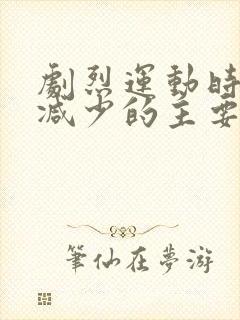 劇烈運動時
減少的主要
筆仙在夢游